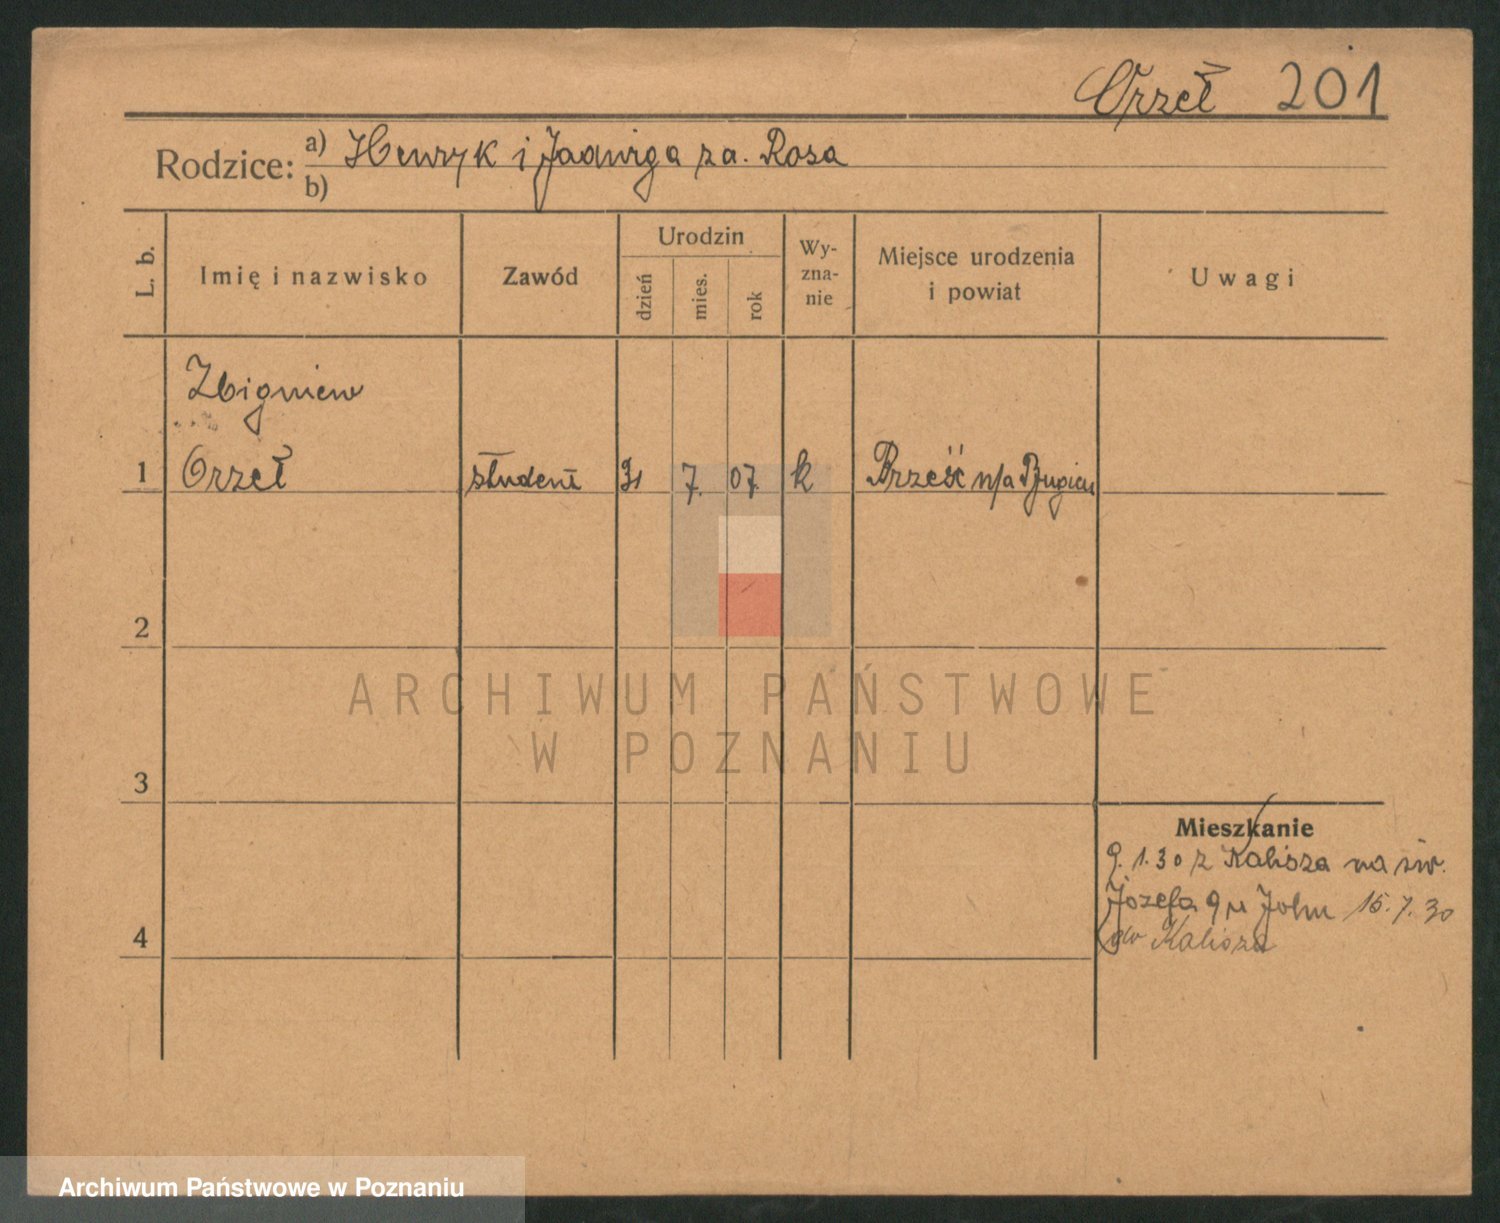 Orzeł 201
Rodzice: a) Henryk i Jadwiga za. Rosa
b)
L. b.
Imię i nazwisko
Zawód
Urodzin
dzień
mies.
rok
Wy-
zna-
nie
Miejsce urodzenia
i powiat
Uwagi
Zbigniew
1 Orzeł student 31 7. 07. k Brześć n/a Bugiem
2
3
4
Mieszkanie
9.1.30 z Kalisza na św.
Józefa 9 u John 15.7.30
do Kalisza
ARCHIWUM PAŃSTWOWE
W POZNANIU
Archiwum Państwowe w Poznaniu